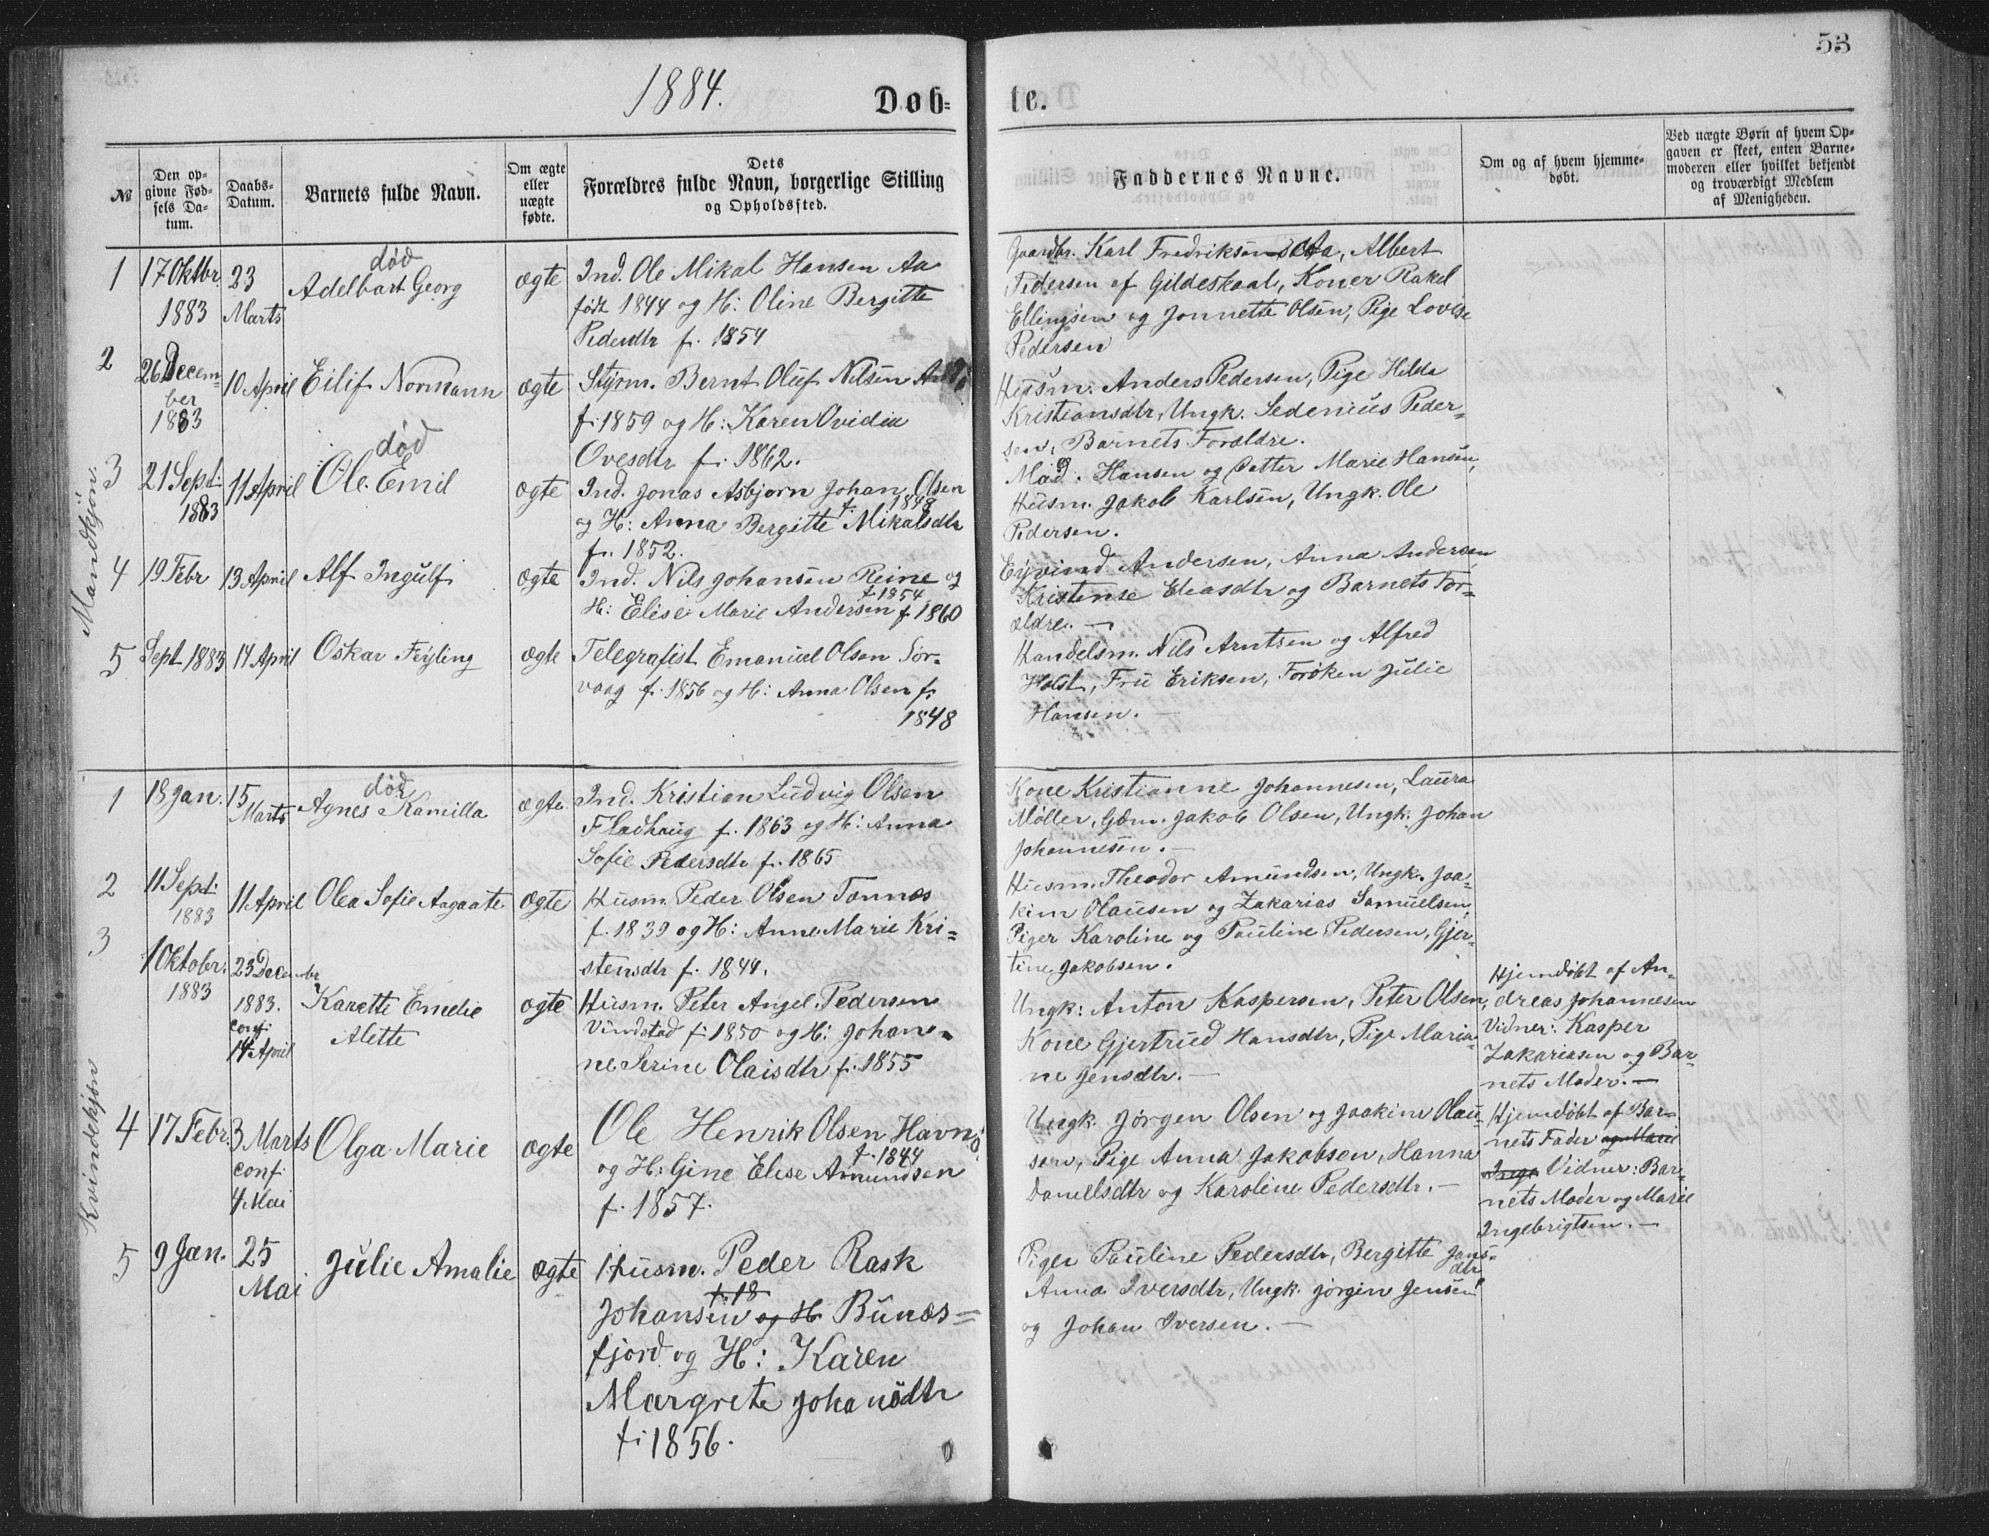 53
1884.
Døb-
te.
№
Den op-
givne Fød-
sels Da-
tum.
Daabs-
Datum.
Barnets fulde Navn.
Om ægte
eller
uægte
fødte.
Dets
Forældres fulde Navn, borgerlige Stilling
og Opholdssted.
Faddernes Navne.
Om og af hvem hjemme-
døbt.
Ved uægte Børn af hvem Op-
gaven er skeet, enten Barne-
moderen eller hvilket bekjendt
og troværdigt Medlem
af Menigheden.
Mandkjön.
1
17 Oktbr
1883
23
Marts
død
Adelbart Georg
ægte
Ind. Ole Mikal Hansen Aa
født 1844 og H: Oline Bergitte
Pedersdtr f. 1854
Gaardbr. Karl Fredriksen Aa, Albert
Pedersen af Gildeskaal, Koner Rakel
Ellingsen og Jonnette Olsen, Pige Lovise
Pedersen
2
26 Decem-
ber
1883
10 April
Eilif Normann
ægte
Styrm. Bernt Oluf Nilsen
f. 1859 og H: Karen Ovidia
Ovesdtr f. 1862.
Husm. Anders Pedersen, Pige Hilda
Kristiansdtr, Ungk. Sedenius Peder-
sen, Barnets Forældre.
3
21 Sept:
1883
11 April
død
Ole Emil
ægte
Ind. Jonas Asbjorn Johan Olsen
f. 1848
og H: Anna Bergitte Mikalsdtr
f. 1852.
Mad. Hansen og Datter Marie Hansen,
Husm. Jakob Karlsen, Ungk. Ole
Pedersen.
4
19 Febr
13 April
Alf Ingulf
ægte
Ind. Nils Johansen Reine og
f. 1854
H: Elise Marie Andersen f. 1860
Eyvind Andersen, Anna Andersen
Kristense Eliasdtr og Barnets For-
ældre. —
5
Sept 1883
14 April
Oskar Feyling
ægte
Telegrafist Emanuel Olsen Sør-
vaag f. 1856 og H: Anna Olsen f.
1848
Handelsm. Nils Arntsen og Alfred
Holst, Fru Eriksen, Frøken Julie
Hansen. —
Kvindekjön
1
18 Jan.
15
Marts
død
Agnes Kamilla
ægte
Ind. Kristian Ludvig Olsen
Fladhaug f. 1863 og H: Anna
Sofie Pedersdtr f. 1865
Kone Kristianne Johannesen, Laura
Møller, Gbm. Jakob Olsen, Ungk. Johan
Johannesen. —
2
11 Sept:
1883
11 April
Olea Sofie Aagaate
ægte
Husm. Peder Olsen Tonnæs
f. 1839 og H: Anne Marie Kri-
stensdtr f. 1844.
Husm. Theodor Amundsen, Ungk. Joa-
kim Olausen og Zakarias Samuelsen,
Piger Karoline og Pauline Pedersen, Gjer-
tine Jakobsen.
3
1 Oktober.
1883
23 December
1883.
conf:
14 April
Karette Emelie
Alette
ægte
Husm. Peter Angel Pedersen
Vindstad f. 1850 og H: Johan-
ne Serine Olaisdtr f. 1855
Ungk: Anton Kaspersen, Peter Olsen,
Kone Gjertrud Hansdtr, Pige Maria-
ne Jensdtr. —
Hjemdøbt af An-
dreas Johannesen
Vidner: Kasper
Zakariasen og Bar-
nets Moder. —
4
17 Febr.
3 Marts
conf:
4 Mai
Olga Marie
ægte
Ole Henrik Olsen Havn
f. 1844
og H: Gine Elise Amundsen
f. 1857.
Ungk. Jørgen Olsen og Joakim Olau-
sen, Pige Anna Jakobsen, Hanna
Danielsdtr og Karoline Pedersdtr. —
Hjemdøbt af Bar-
nets Fader og Marie
Inge Vidner: Bar-
nets Moder og Marie
Ingebrigtsen. —
5
9 Jan.
25
Mai
Julie Amalie
ægte
Husm. Peder Rask
f. 18
Johansen og H Bunæs-
fjord og H: Karen
Margrete Johansdtr
f. 1856.
Piger Pauline Pedersdtr, Bergitte Jans-
dtr
Anna Iversdtr, Ungk. Jørgen Jensen
og Johan Iversen. —